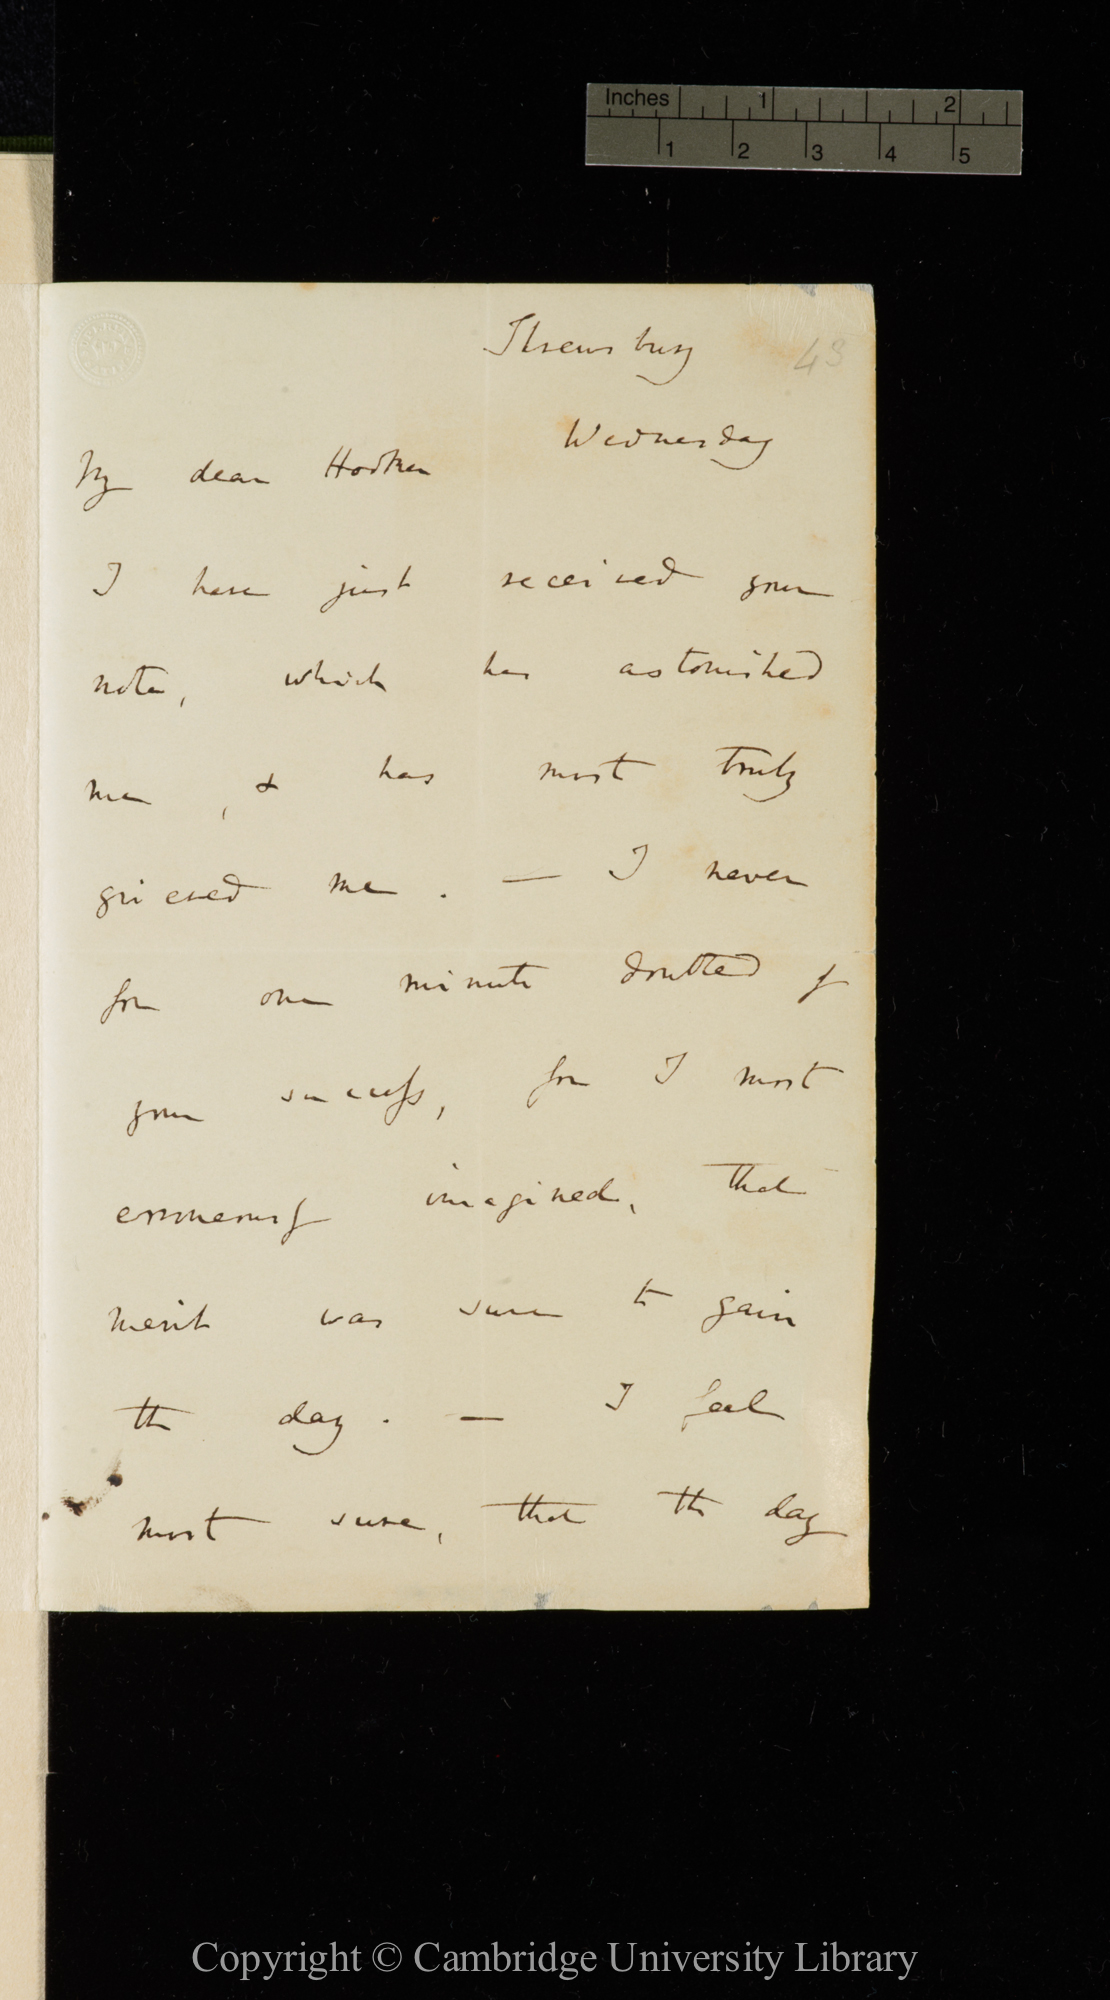 Inches 1 2
1 2 3 4 5
Shrewsbury
48
Wednesday
My dear Hooker
I have just received your
note, which has astonished
me, & has most truly
grieved me. — I never
for one minute doubted of
your success, for I most
erroneously imagined, that
merit was sure to gain
the day. — I feel
most sure, that the day
Copyright © Cambridge University Library